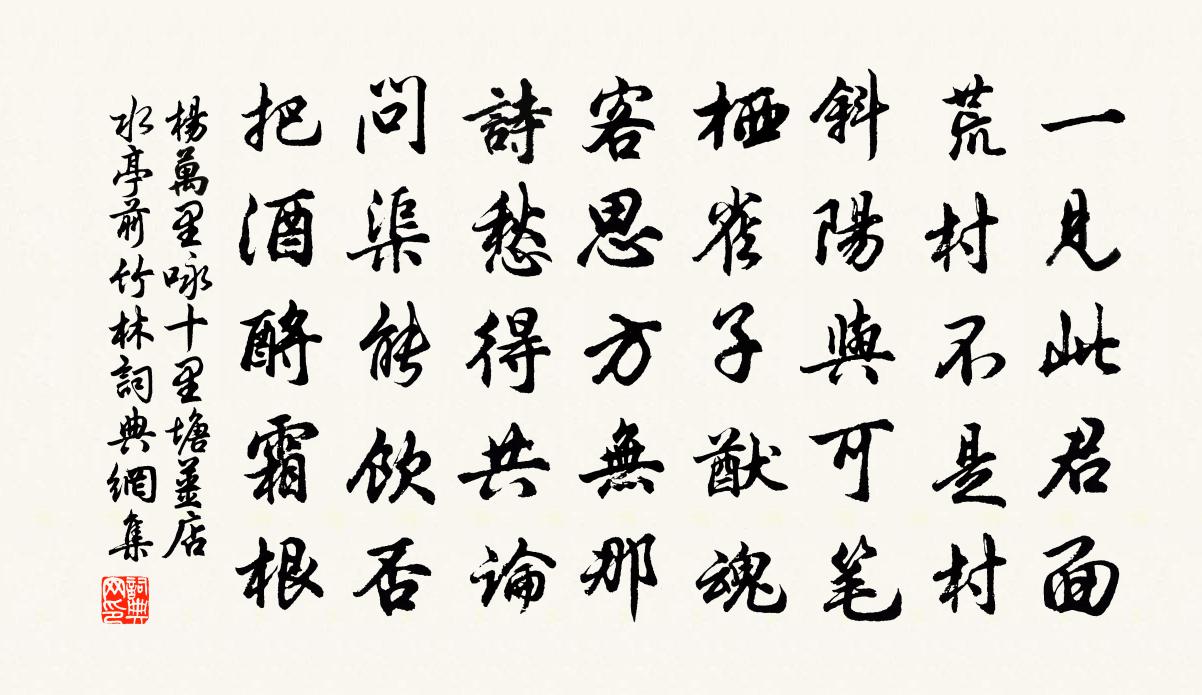 一見此君面
荒村不是村
斜陽與可笔
栖雀子猷魂
客思方無那
詩愁得共論
問渠能飲否
把酒酹霜根
楊萬里咏十里塘薑店
水亭前竹林詞典網集
詞典
网印